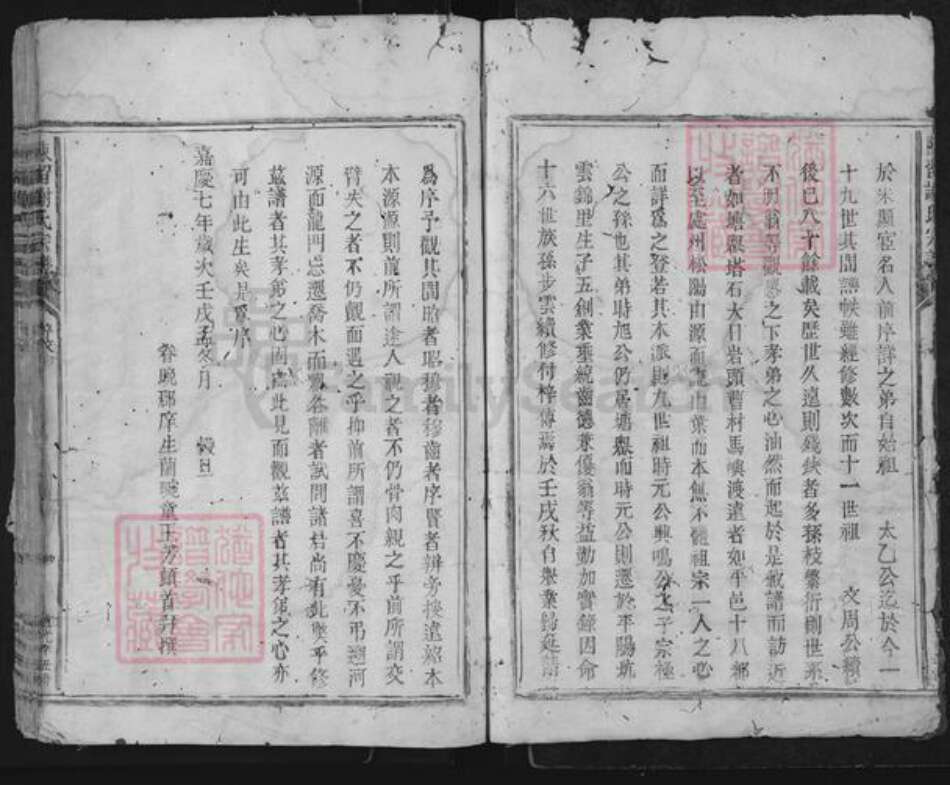 於朱顯宦名人前序詳之弟自始祖 太乙公迄於今一
十九世其間譜帙雖經修數次而十一世祖 文周公續
後已八十餘載矣歷世久遠則錢缺者多孫枝繁衍創世系
不明翁等觀感之下孝弟之心油然而起於是攸譜而訪近
者如塘觀塔石大日岩頭曹村馬嶼渡遠者如平邑十八都
以至處州松陽由源而支由葉而本無不體祖宗一人之心
而詳爲之登若其本派則九世祖時元公與鳴公之子宗極
公之孫也其弟時旭公仍居塘觀而時元公則遷於平陽坑
雲錦里生子五創業垂統齒德兼優翁等益勤加實錄因命
十六世族孫步雲續修付梓傳焉於壬戌秋自舉業歸延請
爲序予觀其間昭者昭穆者穆齒者序賢者辨旁接遠紹本
本源源則前所謂途人視之者不仍骨肉親之乎前所謂交
臂失之者不仍覿面遇之乎抑前所謂喜不慶憂不弔遡河
源而龍門忘遷喬木而
各離者試問諸君尚有此墜乎修
茲譜者其孝弟之心固由此見而觀茲譜者其孝弟之心亦
可由此生矣是爲序
嘉慶七年歲次壬戌孟冬月 穀旦
眷晚邵庠生蘭畹童王芳頓首拜撰
FamilySearch